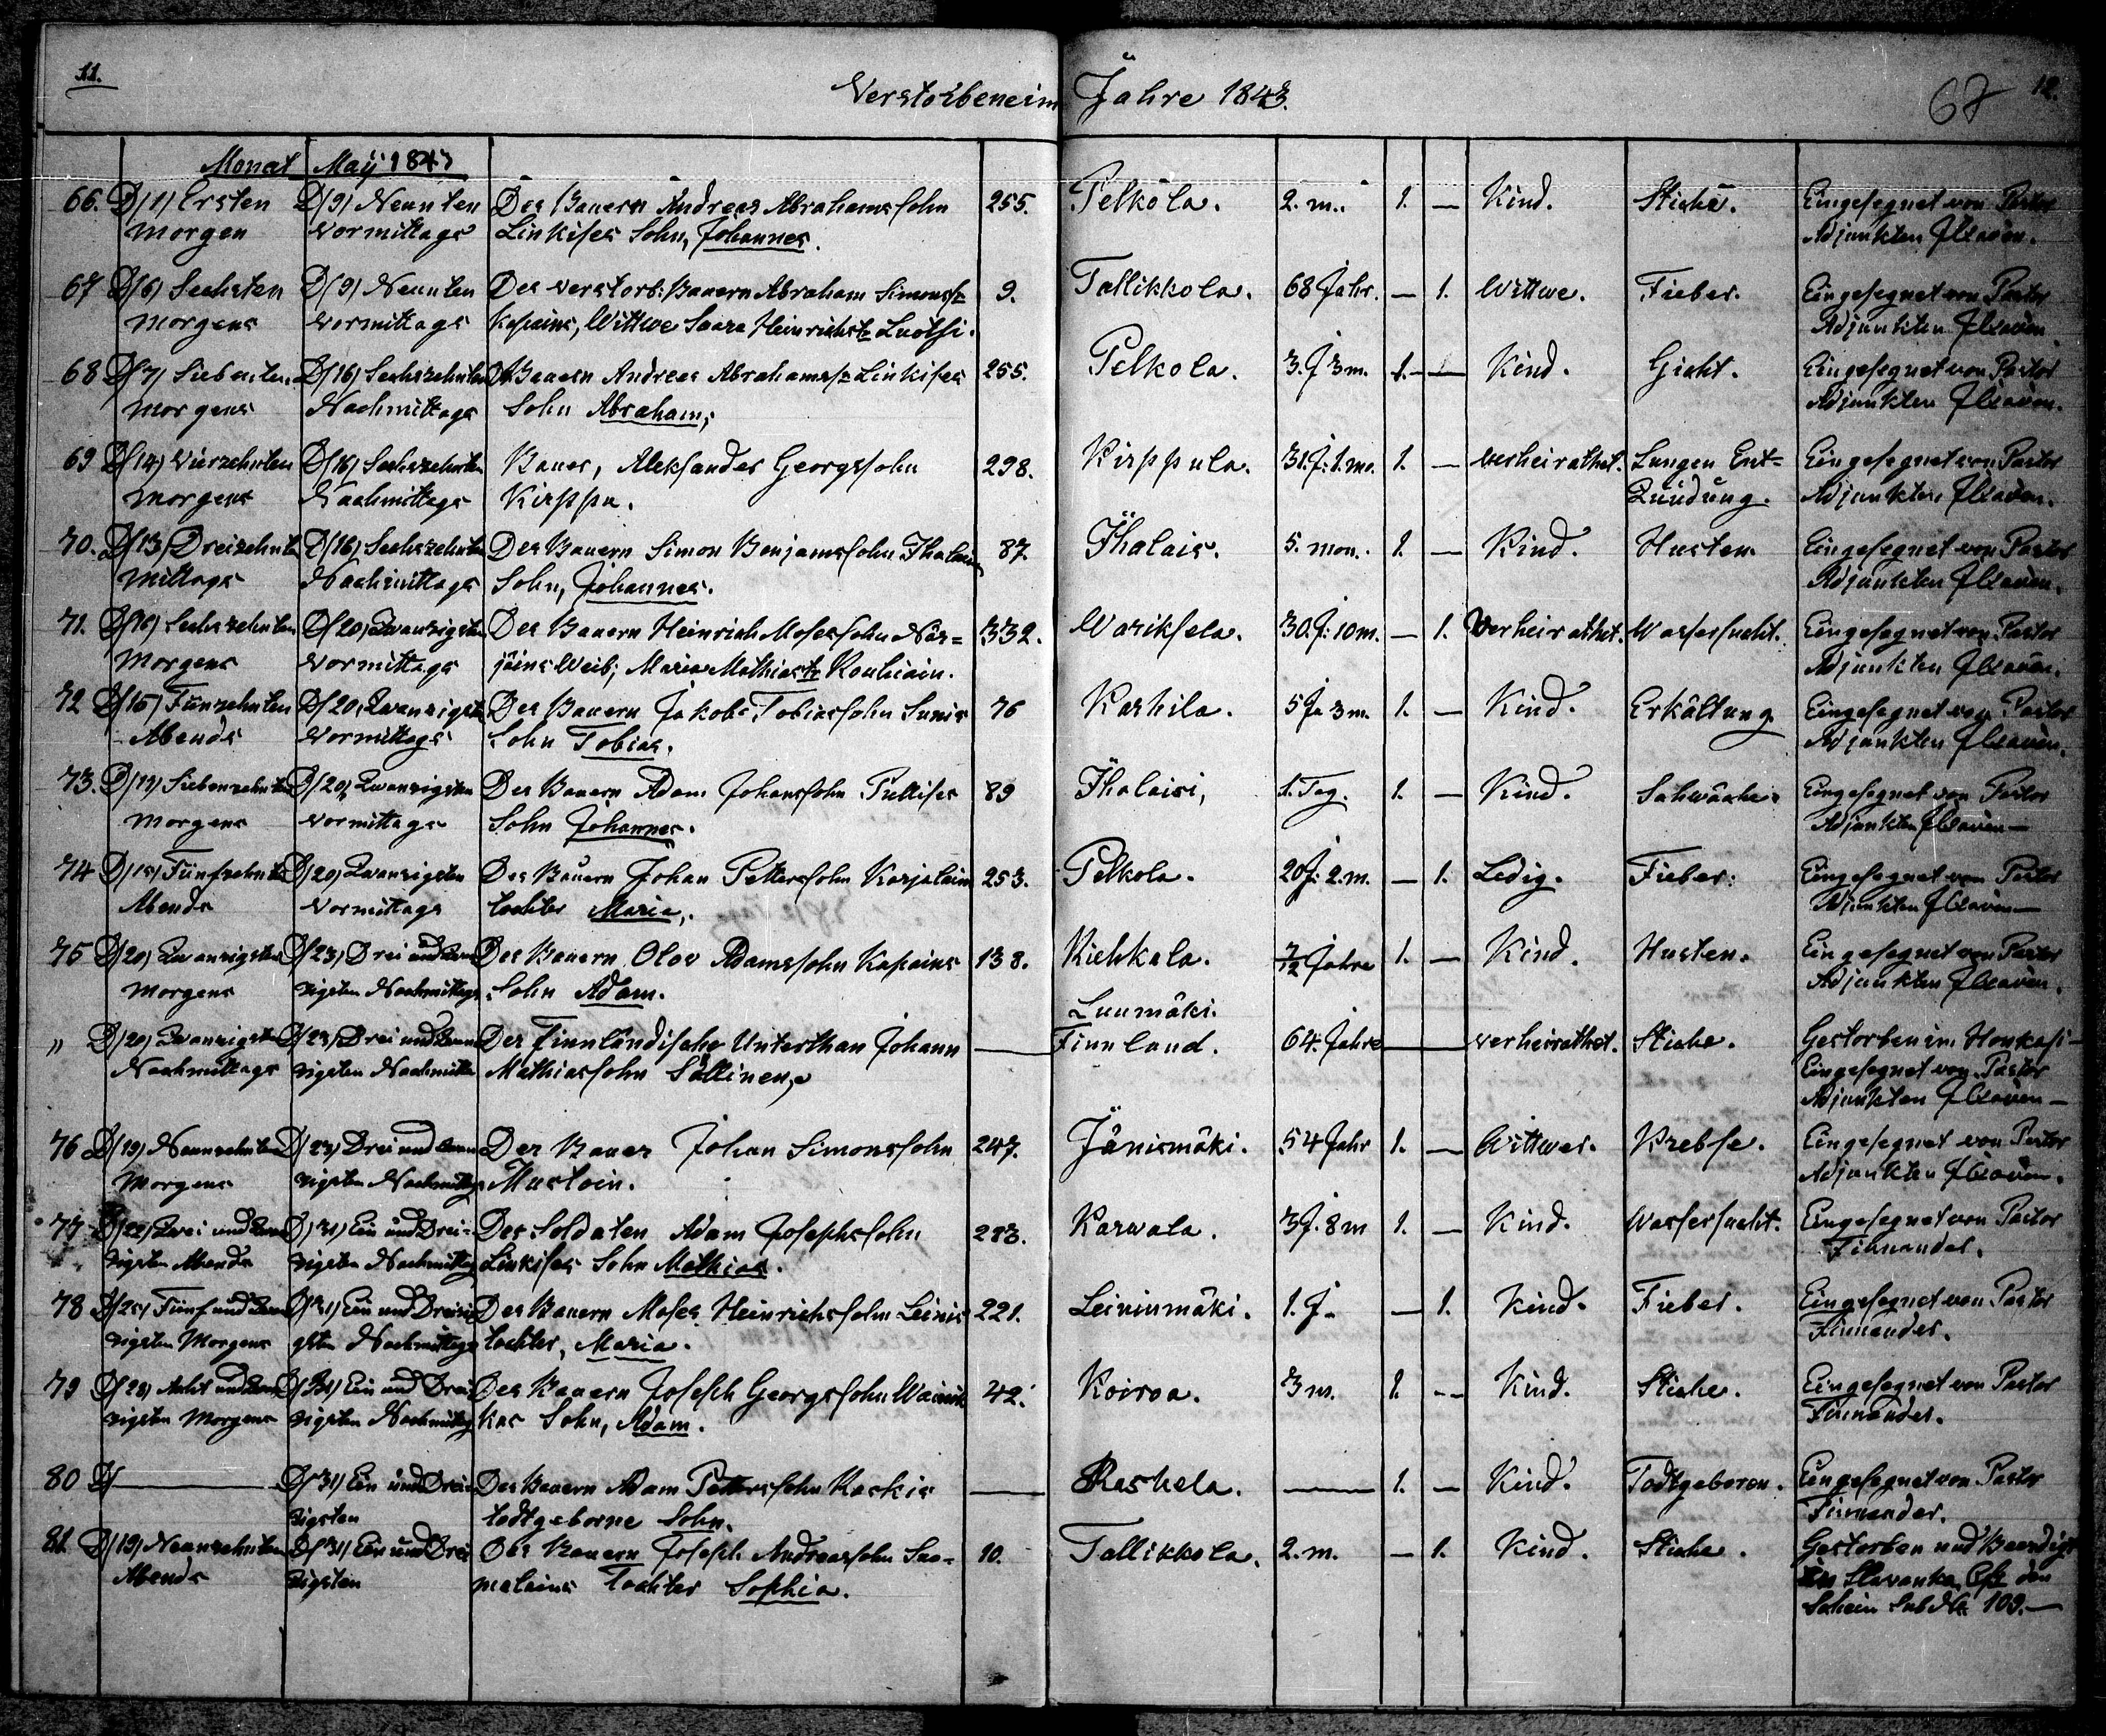 11.
Verstorbene im Jahre 1843.
67 12.
Monat May 1843
66. D/1/ Ersten D/9/ Neunten Des Bauern Andreas Abrahamssohn 255. Pelkola. 2. m. 1. — Kind. Stiche. Eingesegnet von Pastor
Morgen Vormittags Linkises Sohn, Johannes. Adjunkten
67 D/6/ Sechsten D/9/ Neunten Des verstorb. Bauern Abraham Simonss 9. Tallikkola. 68 Jahr. — 1. Wittwe. Fieber. Eingesegnet von Pastor
Morgens Vormittags Kapains, Wittwe Saara Heinrichst Adjunkten
68 D/7/ Siebenten D/16/ Sechszehnten Bauern Andreas Abrahamss Linkises 255. Pelkola. 3. J 3 m. 1. — Kind. Gicht. Eingesegnet von Pastor
Morgens Nachmittags Sohn Abraham, Adjunkten
69 D/14/ Vierzehnten D/16/ Sechszehnten Bauer, Aleksander Georgssohn 298. Kirppula. 31. J: 1. mo. 1. — verheirathet. Lungen Ent=
Morgens Nachmittags Kirppu. Zündung. Eingesegnet von Pastor Adjunkten
70. D/13/ Dreizehnten D/16/ Sechszehnten Des Bauern Simon Benjamssohn 87. Ihalais. 5. mon. 1. — Kind. Husten Eingesegnet von Pastor
Mittags Nachmittags Sohn, Johannes. Adjunkten
71. D/16/ Sechszehnten D/20/ Zwanzigsten Des Bauern Heinrich Mosessohn När= 332. Wariksela. 30. J: 10 m. — 1. Verheirathet. Wassersucht. Eingesegnet von Pastor
Morgens Vormittags jäins Weib, Maria Mathiast Adjunkten
72 D/15/ Fünzehnten D/20, Zwanzigsten Des Bauern Jakobs Tobiassohn Sunis 76 Karhila. 5 Ja 3 m. 1. — Kind. Erkältung Eingesegnet von Pastor
Abends Vormittags Sohn Tobias. Adjunkten
73. D/17/ Siebenzehnten D/20/ Zwanzigsten Des Bauern Adam Johanssohn Pullises 89 Ihalaisi, 1. Tag. 1. — Kind. Schwäche. Eingesegnet von Pastor
Morgens Vormittags Sohn Johannes. Adjunkten
74 D/15/ Fünfzehnten D/20/ Zwanzigsten Des Bauern Johan Petterssohn Karjalain 253. Pelkola. 20 J: 2. m. — 1. Ledig. Fieber. Eingesegnet von Pastor
Abends Vormittags tochter Maria, Adjunkten
75 D/20/ Zwanzigsten D/23/ Drei und zwan Des Bauern Olov Adamssohn Kapains 138. Kiehkala. 7/12 Jahre 1. — Kind. Husten. Eingesegnet von Pastor
Morgens zigsten Nachmittags Sohn Adam. Adjunkten
Luumäki.
" D/20/ Zwanzigsten D/23/ Drei und zwan Der Finnländische Unterthan Johann — Finnland. 64. Jahre — verheirathet. Stiche. Gestorben in Honkasi
Nachmittags zigsten Nachmitta Mathiassohn Sällinen, Eingesegnet von Pastor
Adjunkten
76 D/19/ Neunzehnten D/23/ Drei und zwan Der Bauer Johan Simonssohn 247. Jänismäki. 54 Jahr 1. — Wittwer. Krebse. Eingesegnet von Pastor
Morgens zigsten Nachmittag Mustoin. Adjunkten
77 D/22/ Zwei und zwan D/31/ Ein und Drei= Des Soldaten Adam Josephssohn 283. Karwala. 3 J. 8 m 1. — Kind. Wassersucht. Eingesegnet von Pastor
zigsten Abends zigsten Nachmittag Linkises Sohn Mathias.
78 D/25/ Fünf und zwan D/31/ Ein und Dreisi Des Bauern Moses Heinrichssohn Leinis 221. Leininmäki. 1. J. — 1. Kind. Fieber. Eingesegnet von Pastor
zigsten Morgens gsten Nachmittags tochter, Maria.
79 D/28/ Acht und zwan D/31/ Ein und Drei Des Bauern Joseph Georgssohn Wainik 42. Koiroa. 3 m. 1. — Kind. Stiche. Eingesegnet von Pastor
zigsten Morgens zigsten Nachmittag kas Sohn, Adam.
80 D/ — D/31/ Ein und Drei Des Bauern Adam Petterssohn Kaskis — Raskela. — 1. — Kind. Todtgeboren. Eingesegnet von Pastor
zigsten todtgeborne Sohn.
81. D/19/ Neunzehnten D/31/ Ein und Drei Des Bauern Joseph Andreassohn Suo= 10. Tallikkola. 2. m. — 1. Kind. Stiche. Gestorben und Beerdigt
Abends zigsten malains Tochter Sophia. in Slavanka, den
Schein sub No 109.—